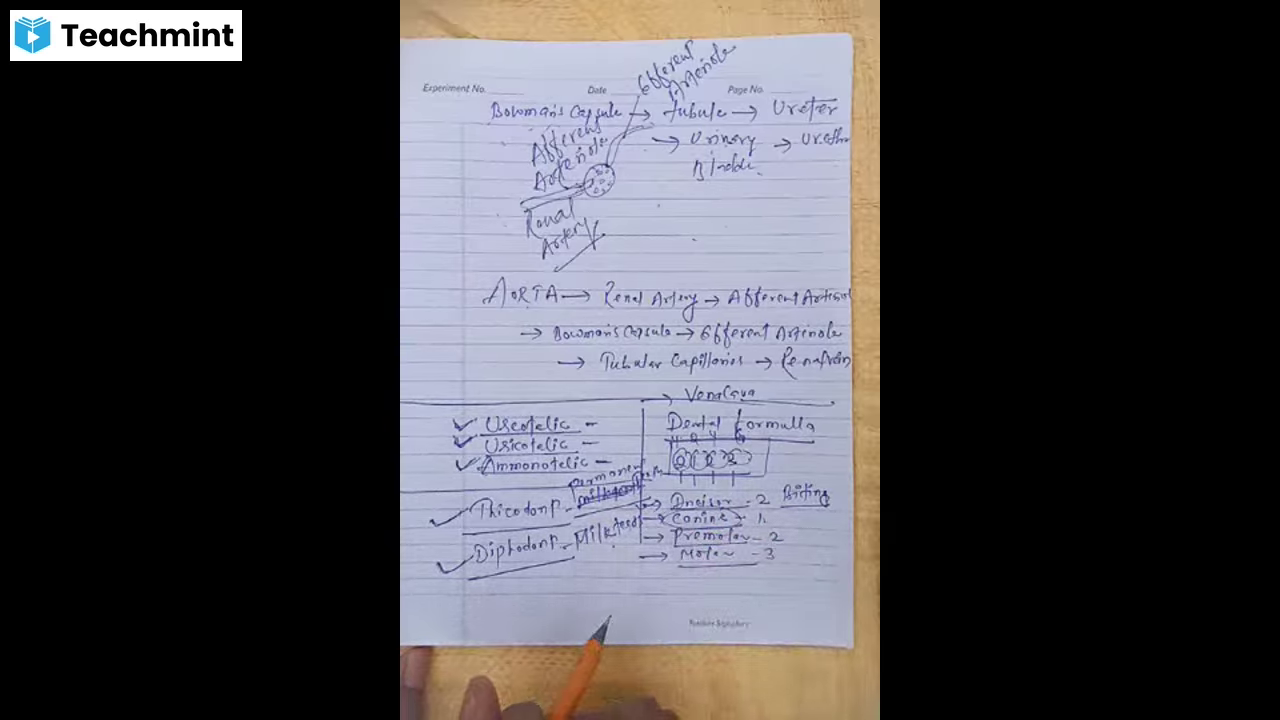 Teachmint
Experiment No.
Date
Page No.
Efferent
Arteriole
Bowman's Capsule → tubule → Ureter
→ Urinary → Urethra
Afferent
Arteriole
Renal
Artery
AORTA → Renal Artery → Afferent Arteriol
→ Bowman's Capsule → Efferent Arteriole
→ Tubular Capillaries →
→ VenaCava
Ureotelic -
Uricotelic -
Ammonotelic -
Thicodont - Permanent
Diphodont - Milk teeth
Dental formulla
→ Incisor - 2 Biting
→ Canine - 1
→ Premolar - 2
→ Molar - 3